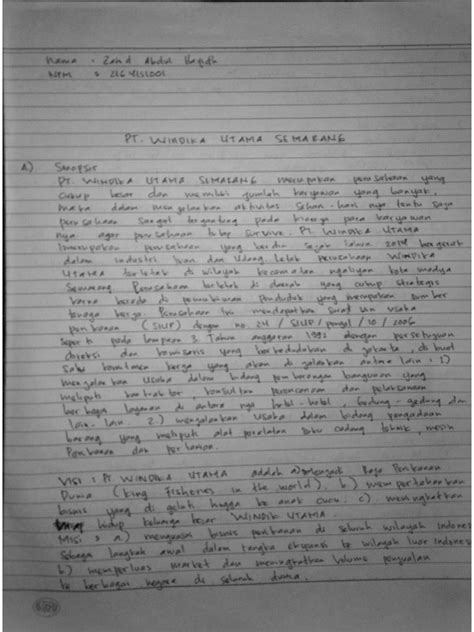 Nama : Zaid Abdul
NPM :
PT. WINDIKA UTAMA SEMARANG
A.) Sinopsis
PT. WINDIKA UTAMA SEMARANG merupakan perusahaan yang
cukup besar dan memiliki jumlah karyawan yang banyak.
maka dalam menjalankan aktivitas sehari-hari nya tentu saja
perusahaan sangat tergantung pada kinerja para karyawan
nya agar perusahaan tetap survive. PT. WINDIKA UTAMA
merupakan perusahaan yang berdiri sejak tahun bergerak
dalam industri Ikan dan Udang. Letak perusahaan WINDIKA
UTAMA terletak di wilayah kecamatan ngaliyan kota madya
Semarang. Perusahaan terletak di daerah yang cukup strategis
karna berada di pemukiman penduduk yang merupakan sumber
tenaga kerja. Perusahaan ini mendapatkan surat izin usaha
perikanan (SIUP) dengan no. 24 / SIUP / / 10 / 2006
seperti pada lampiran 3. Tahun anggaran 1992 dengan persetujuan
direksi dan komisaris yang berkedudukan di jakarta, di buat
satu komitmen kerja yang akan di jalankan antara lain : 1.)
menjalankan usaha dalam bidang pemborongan bangunan yang
meliputi kontraktor, konsultan perencanaan dan pelaksanaan
berbagai layanan di antara nya hotel-hotel, Gedung-gedung dan
lain-lain. 2.) menjalankan usaha dalam bidang pengadaan
barang yang meliputi alat peralatan suku cadang teknik mesin
Perikanan dan pertanian.
VISI : PT. WINDIKA UTAMA adalah a) Menjadi Raja Perikanan
Dunia (king fisheries in the world), b.) mempertahankan
bisnis yang di geluti hingga ke anak cucu. c). meningkatkan
hidup keluarga besar WINDIKA UTAMA.
MISI : a.) menguasai bisnis perikanan di seluruh wilayah Indones
Sebagai langkah awal dalam rangka ekspansi ke wilayah luar Indones
b.) memperluas market dan meningkatkan volume penjualan
ke berbagai negara di seluruh dunia.